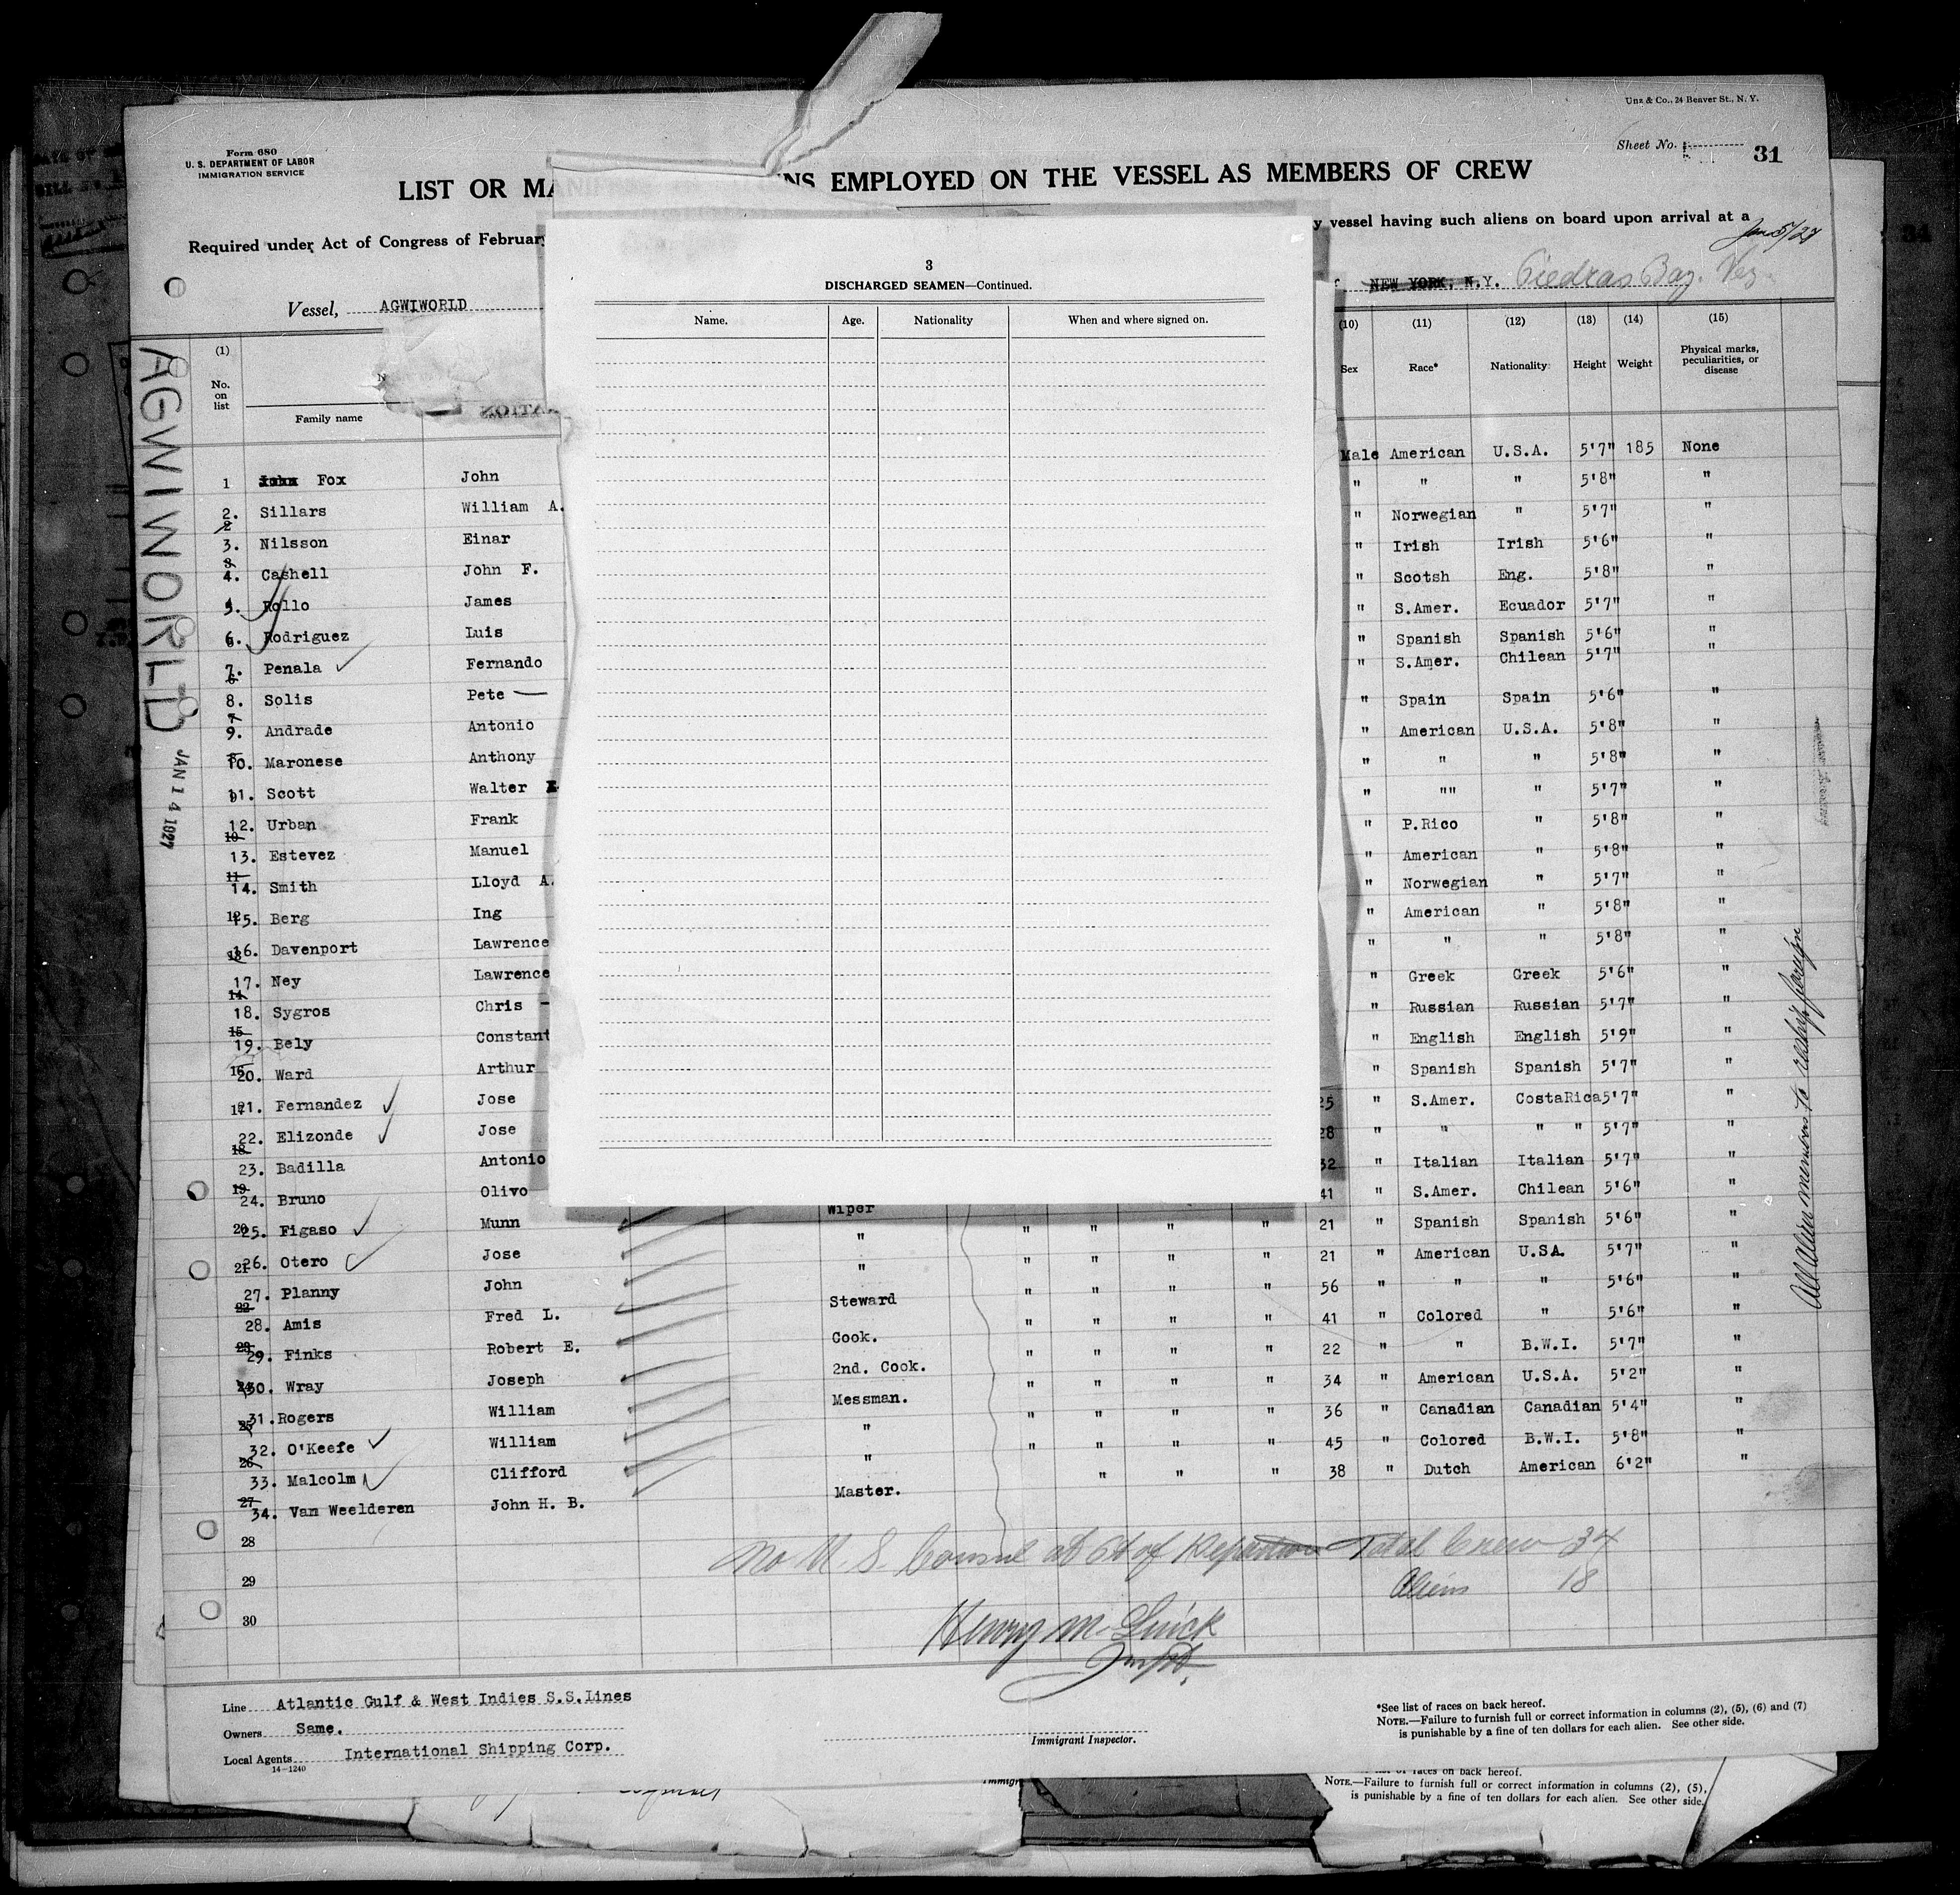 Unz & Co., 24 Beaver St., N. Y.
Form 680
U. S. DEPARTMENT OF LABOR
IMMIGRATION SERVICE
Sheet No. 31
LIST OR MA NS EMPLOYED ON THE VESSEL AS MEMBERS OF CREW
Required under Act of Congress of February y vessel having such aliens on board upon arrival at a
Jan 5/27
Vessel, AGWIWORLD NEW YORK, N.Y. Piedras Bay. Vez
3
DISCHARGED SEAMEN—Continued.
Name. Age. Nationality When and where signed on.
(1) (10) (11) (12) (13) (14) (15)
No. on list Family name Sex Race* Nationality Height Weight Physical marks, peculiarities, or disease
AGWIWORLD
JAN 14 1927
1 Fox John Male American U.S.A. 5'7" 185 None
2. Sillars William A. " " " 5'8" "
3. Nilsson Einar " Norwegian " 5'7" "
4. Cashell John F. " Irish Irish 5'6" "
5. Rollo James " Scotsh Eng. 5'8" "
6. Rodriguez Luis " S.Amer. Ecuador 5'7" "
7. Penala Fernando " Spanish Spanish 5'6" "
8. Solis Pete " S.Amer. Chilean 5'7" "
9. Andrade Antonio " Spain Spain 5'6" "
10. Maronese Anthony " American U.S.A. 5'8" "
11. Scott Walter " " " 5'8" "
12. Urban Frank " "" " 5'7" "
13. Estevez Manuel " P.Rico " 5'8" "
14. Smith Lloyd A. " American " 5'8" "
15. Berg Ing " Norwegian " 5'7" "
16. Davenport Lawrence " American " 5'8" "
17. Ney Lawrence " " " 5'8" "
18. Sygros Chris " Greek Greek 5'6" "
19. Bely Constant " Russian Russian 5'7" "
20. Ward Arthur " English English 5'9" "
21. Fernandez Jose " Spanish Spanish 5'7" "
22. Elizonde Jose 25 " S.Amer. CostaRica 5'7" "
23. Badilla Antonio 28 " " " " 5'7" "
24. Bruno Olivo 32 " Italian Italian 5'7" "
25. Figaso Munn Wiper 41 " S.Amer. Chilean 5'6" "
26. Otero Jose " " " " " 21 " Spanish Spanish 5'6" "
27. Planny John " " " " " 21 " American U.SA. 5'7" "
28. Amis Fred L. Steward " " " " 56 " " " 5'6" "
29. Finks Robert E. Cook. " " " " 41 " Colored " 5'6" "
30. Wray Joseph 2nd. Cook. " " " " 22 " " B.W.I. 5'7" "
31. Rogers William Messman. " " " " 34 " American U.S.A. 5'2" "
32. O'Keefe William " " " " " 36 " Canadian Canadian 5'4" "
33. Malcolm Clifford " " " " " 45 " Colored B.W.I. 5'8" "
34. Van Weelderen John H. B. Master. " " " 38 " Dutch American 6'2" "
28
29
30
All Alien members to reship foreign
No U. S. Consul at Pt of Departure Total Crew 34
Aliens 18
Henry M. Quick
Inspt.
Line Atlantic Gulf & West Indies S.S.Lines
Owners Same.
Local Agents International Shipping Corp.
14-1240
Immigrant Inspector.
*See list of races on back hereof.
NOTE.—Failure to furnish full or correct information in columns (2), (5), (6) and (7)
is punishable by a fine of ten dollars for each alien. See other side.
races on back hereof.
NOTE.—Failure to furnish full or correct information in columns (2), (5),
is punishable by a fine of ten dollars for each alien. See other side.